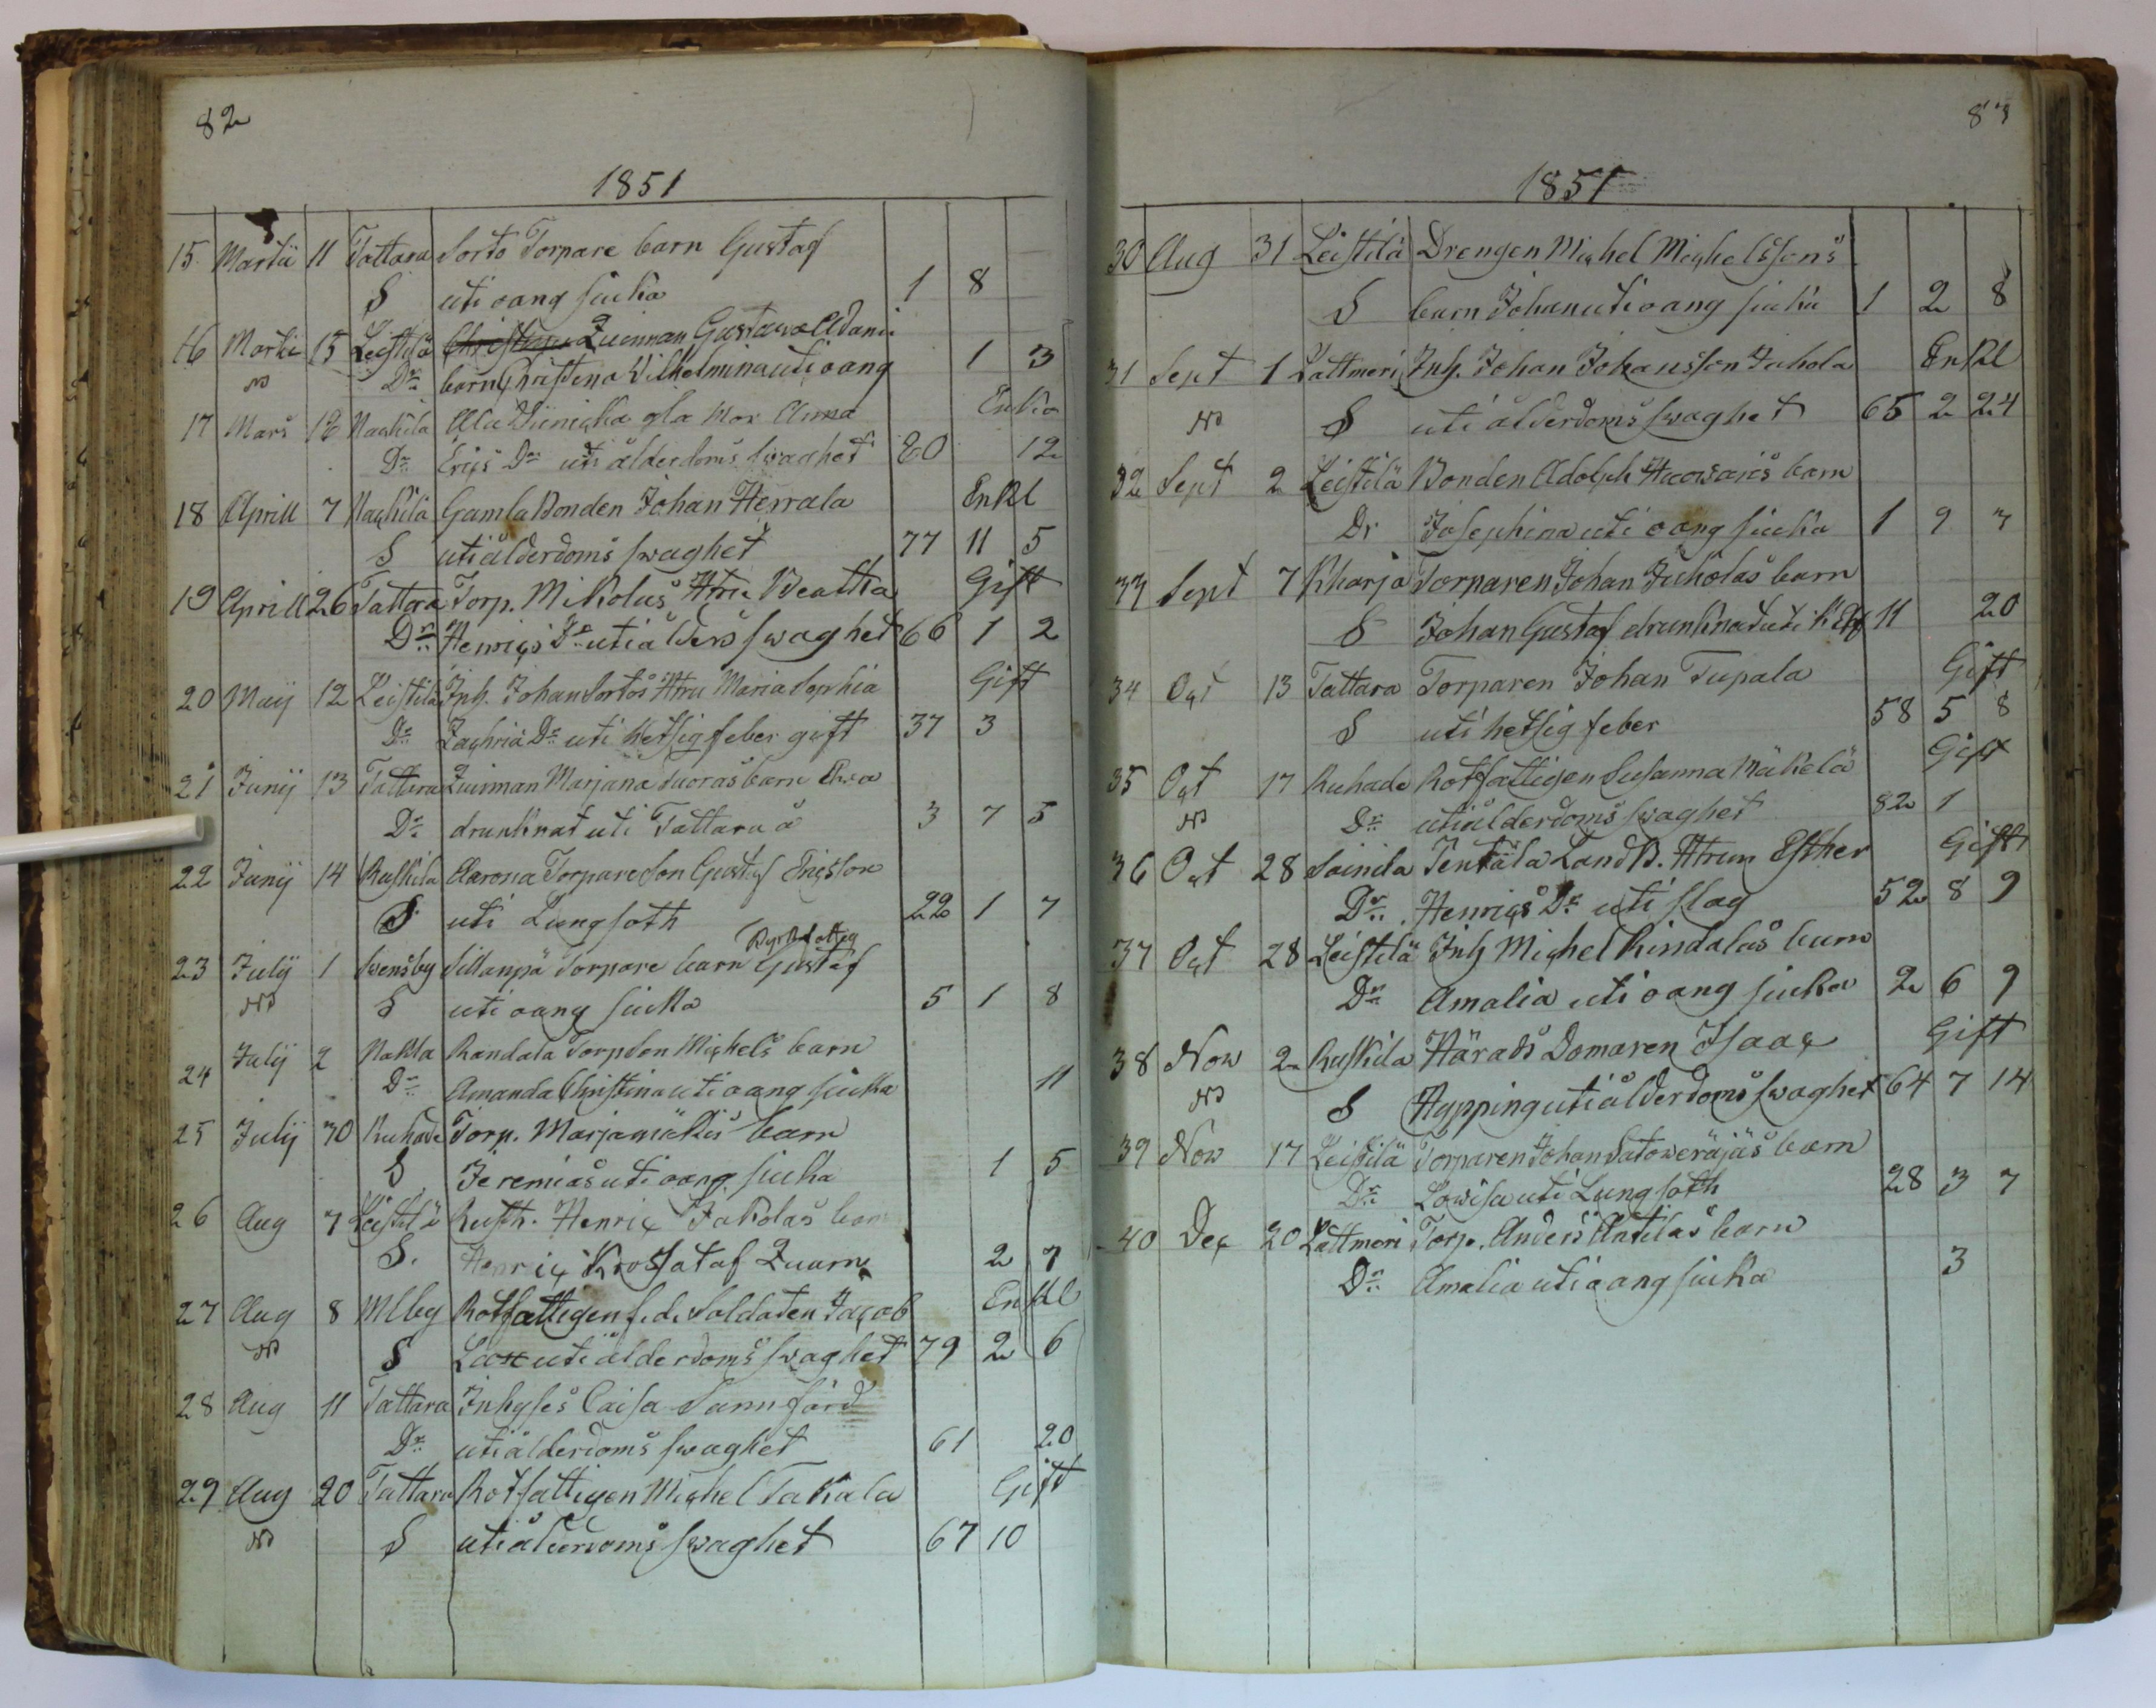 82
1851
15 Martii 11 Tattara Sorto Torpare barn Gustaf
S uti oang siuka 1 8
16 Martii 15 Leistilä Quinnan Gustawa Adami
Dr barn Christina Wilhelmina uti oang 1 3
17 Mars 16 Naskila gla Mor Anna Enka
Dr Erics Dr uti ålderdoms swaghet 80 12
18 Aprill 7 Naskila Gamla Bonden Johan Herrala Enkl
S uti ålderdoms swaghet 77 11 5
19 Aprill 26 Tattara Torp. Mikolas Hru Beatha Gift
Dr Henrics Dr uti ålders swaghet 66 1 2
20 Maij 12 Leistilä Inh. Johan Sortos Hru Maria Sophia Gift
Dr Zachria Dr uti Hetsig feber gift 37 3
21 Junij 13 Tattara Quinnan Marjana Suoras barn Ewa
Dr drunknat uti Tattara å 3 7 5
22 Junij 14 Ruskila Aarona Torpare Son Gustaf Ericsson
S uti Lungsoth 22 1 7
Kyrkofattig
23 Julij 1 Swensby Sillanpä Torpare barn Gustaf
S uti oang siuka 5 1 8
24 Julij 2 Nakla Randala Torp Son Michels barn
Dr Amanda Christina uti oang siuka 11
25 Julij 30 Ruhade Torp. Marjamäkis barn
S Jeremias uti oang siuka 1 5
26 Aug 7 Leistilä Rusth. Henric Jakolas barn
S. Henric Krossat af Quarn 2 7
27 Aug 8 Mlby Rotfattigen f.d. Soldaten Jacob Enkl
S Lax uti ålderdoms swaghet 79 2 6
28 Aug 11 Tattara Inhyses Caisa Sannfärd
Dr uti ålderdoms swaghet 61 20
29 Aug 20 Tattara Rotfattigen Michel Takala Gift
S uti ålderdoms swaghet 67 10
83
1851
30 Aug 31 Leistilä Drengen Michel Michelssons
S barn Johan uti oang siuka 1 2 8
31 Sept 1 Lattmeri Inh. Johan Johansson Juhola Enkl
S uti ålderdoms swaghet 65 2 24
32 Sept 2 Leistilä Bonden Adolph barn
Dr Josephina uti oang siuka 1 9 7
33 Sept 7 Kharja Torparen Johan Juholas barn
S Johan Gustaf drunknat uti 11 20
34 Oct 13 Tattara Torparen Johan Tupala Gift
S uti hetsig feber 58 5 8
35 Oct 17 Ruhade Rotfattigen Susanna Mäkelä Gift
Dr uti ålderdoms swaghet 82 1
36 Oct 28 Soinila Tentala Land B. Hrun Esther Gift
Dr Henrics Dr uti slag 52 8 9
37 Oct 28 Leistilä Inh Michel Rindalas barn
Dr Amalia uti oang siuka 2 6 9
38 Now 2 Ruskila Härads Domaren Isaac Gift
S Hypping uti ålderdoms swaghet 64 7 14
39 Now 17 Leistilä Torparen Johan Satoweräjäs barn
Dr Lowisa uti Lungsoth 28 3 7
40 Dec 20 Lattmeri Torp. Anders Antilas barn
Dr Amalia uti oang siuka 3